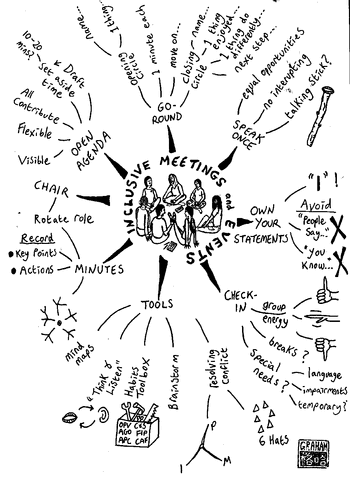 INCLUSIVE MEETINGS and EVENTS
GO-
ROUND
Opening
circle
name...
1 thing...
1 minute each
move on...
closing
circle
name...
1 thing I
enjoyed...
1 thing I do
differently...
next step...
SPEAK
ONCE
equal opportunities
no interrupting
talking stick?
OWN
YOUR
STATEMENTS
"I"!
Avoid
"People
Say..."
"You
Know..."
CHECK-
IN
group
energy
breaks?
Special
needs?
language
impairments
temporary?
TOOLS
mind
maps
"Think &
Listen"
Habits
Toolbox
OPV
CAS
AGO
FIP
APC
CAF
Brainstorm
Resolving
conflict
P
M
I
6 Hats
MINUTES
Record
Key Points
Actions
CHAIR
Rotate role
OPEN
AGENDA
10-20
mins?
Draft
set aside
time
All
Contribute
Flexible
Visible
GRAHAM